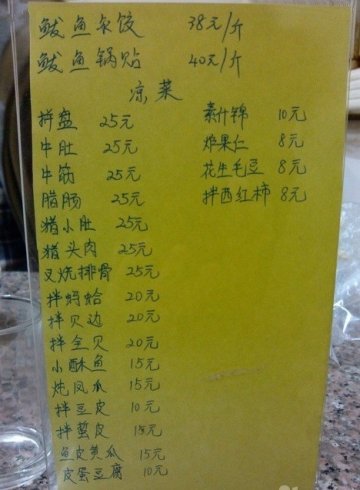 鲅鱼水饺 38元/斤
鲅鱼锅贴 40元/斤
凉菜
拌盘 25元 素什锦 10元
牛肚 25元 炸果仁 8元
牛筋 25元 花生毛豆 8元
腊肠 25元 拌西红柿 8元
猪小肚 25元
猪头肉 25元
叉烧排骨 25元
拌蚂蛤 20元
拌贝边 20元
拌全贝 20元
小酥鱼 15元
炖凤爪 15元
拌豆皮 10元
拌蜇皮 15元
鱼皮黄瓜 15元
皮蛋豆腐 10元